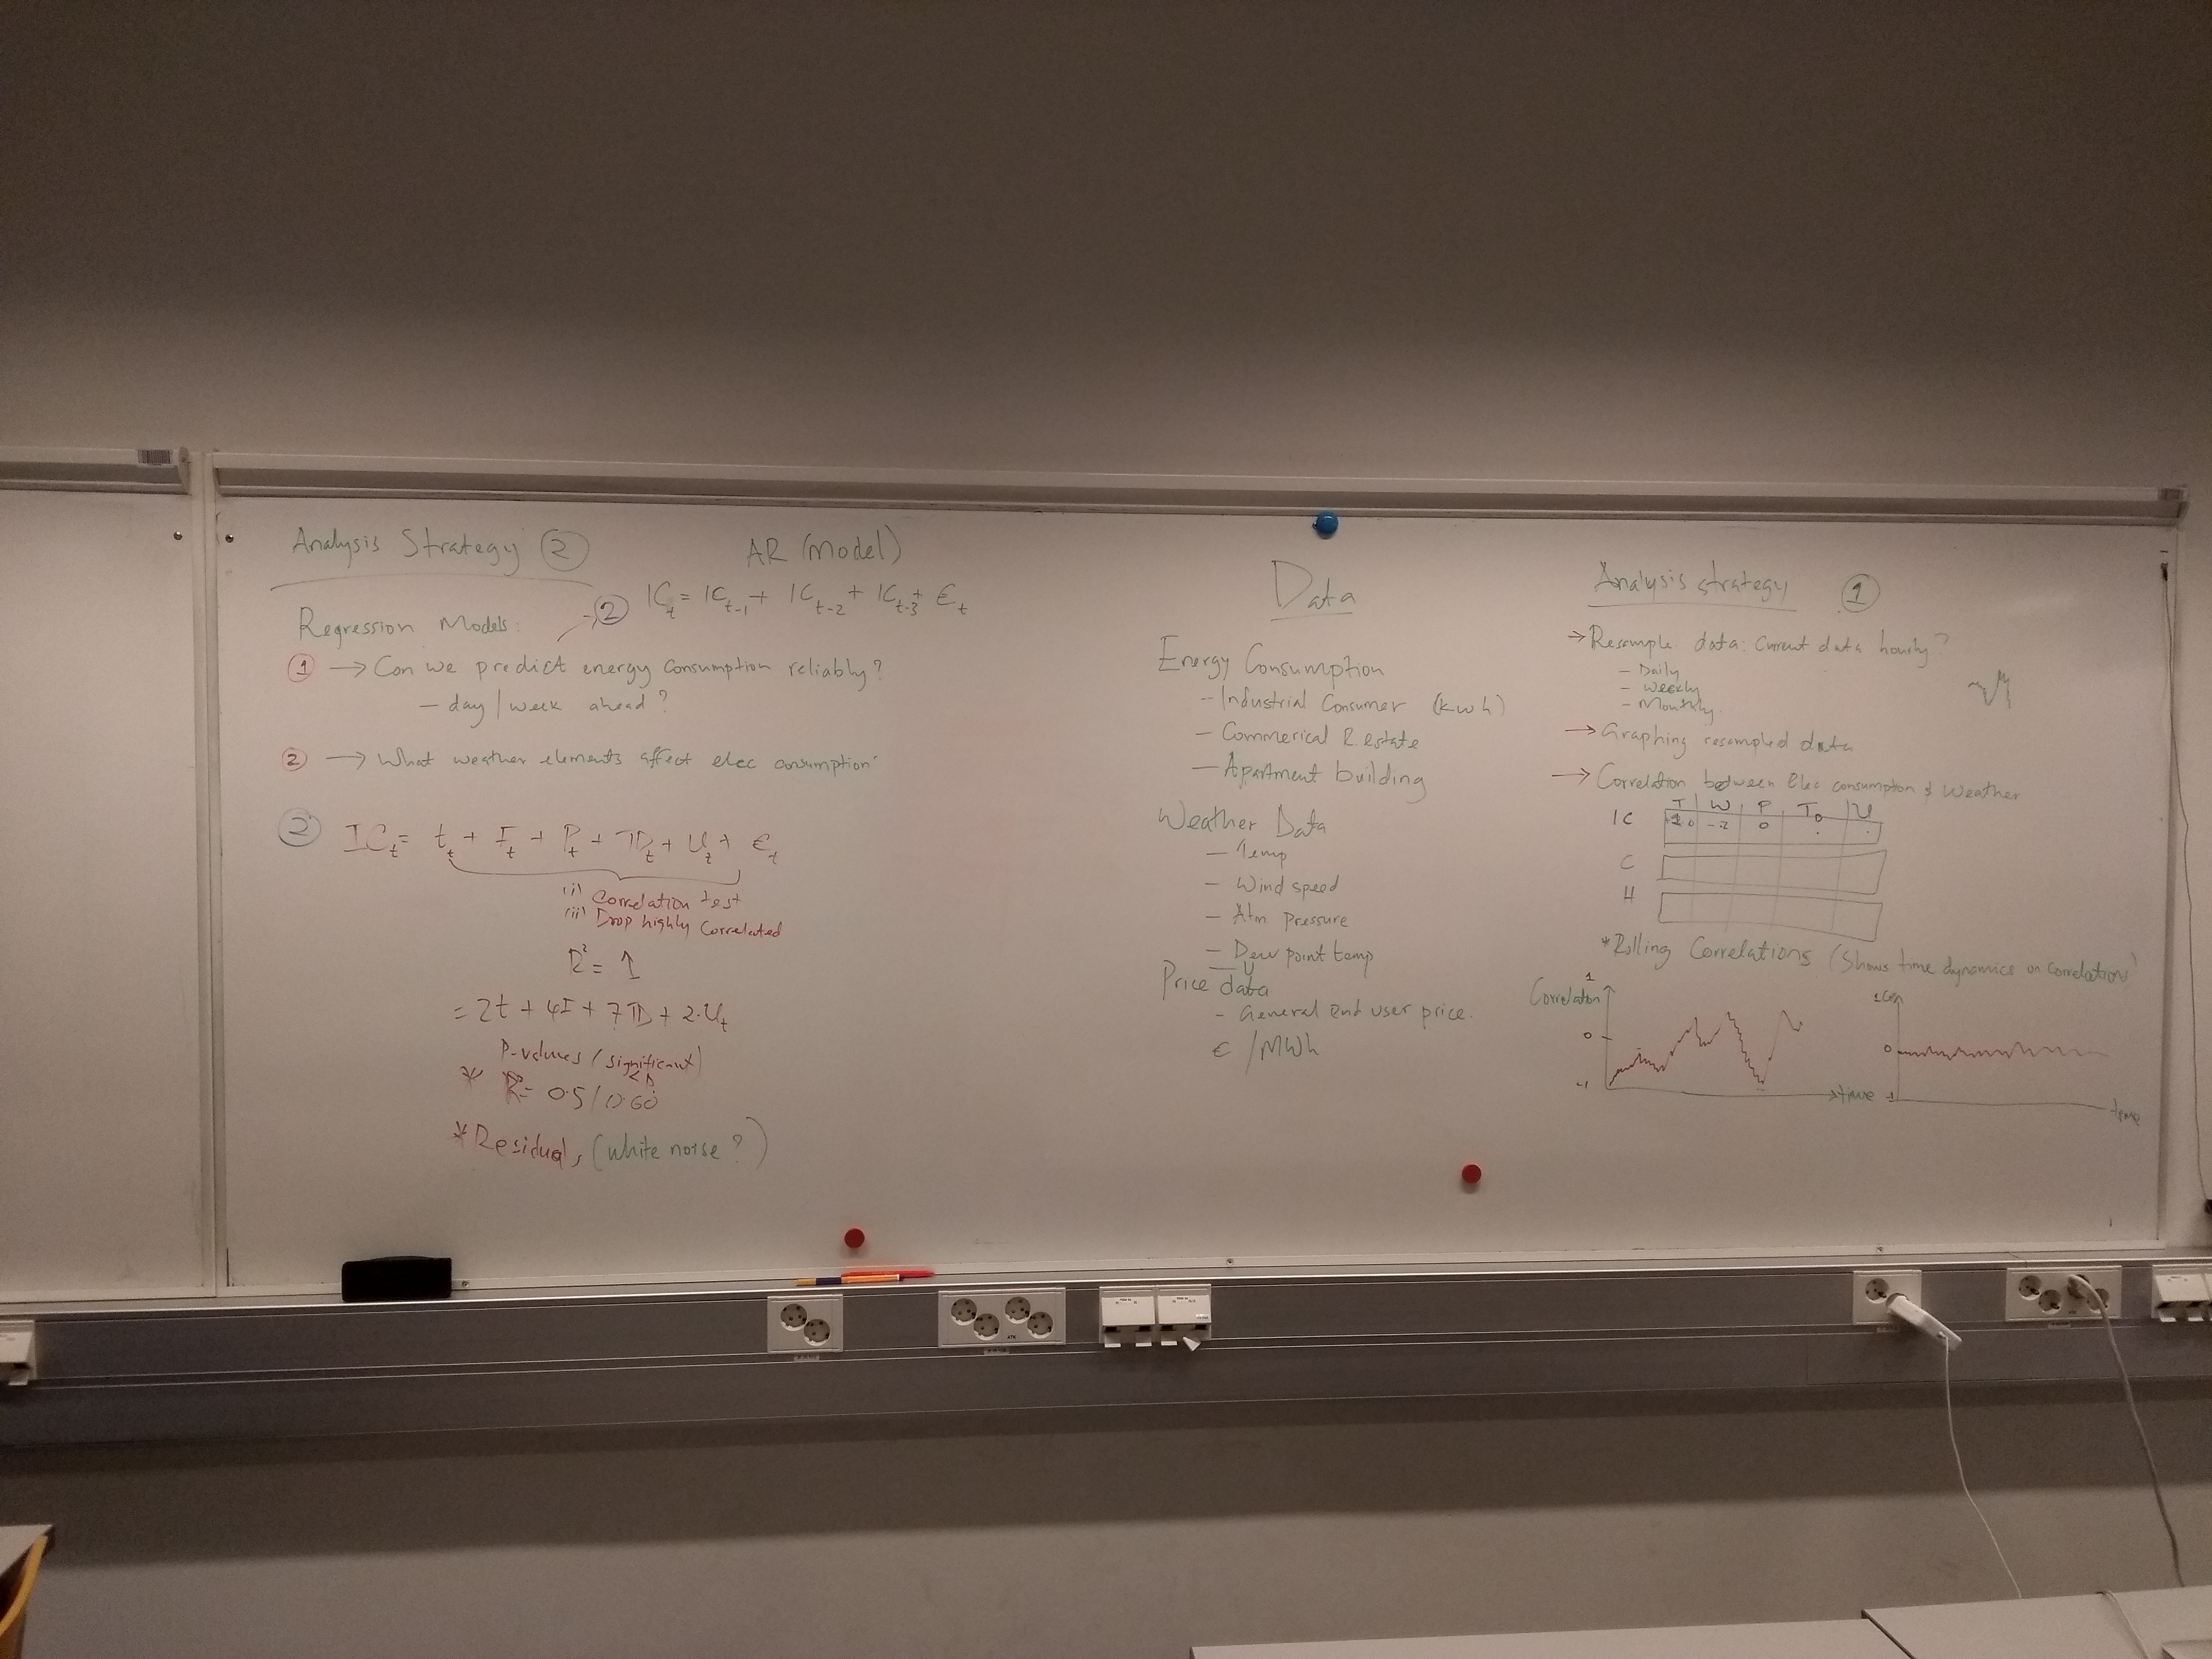 Analysis Strategy 2
AR (Model)
2 IC_t = IC_t-1 + IC_t-2 + IC_t-3 + ε_t
Regression Models:
1 → Can we predict energy consumption reliably?
– day / week ahead?
2 → What weather elements affect elec consumption
2 IC_t = t_t + I_t + P_t + TD_t + U_t + ε_t
(i) Correlation test
(ii) Drop highly Correlated
R² = ↑
= 2t + 4I + 7TD + 2.U_t
P-values (significant)
* R² = 0.5 / 0.60
* Residuals (white noise?)
Data
Energy Consumption
– Industrial Consumer (kwh)
– Commerical R. estate
– Apartment building
Weather Data
– Temp
– Wind speed
– Atm Pressure
– Dew point temp
– U
Price data
– General end user price.
€ /MWh
Analysis strategy 1
→ Resample data: Current data hourly?
– Daily
– Weekly
– Monthly.
→ Graphing resampled data
→ Correlation between Elec consumption & Weather
T W P T_D U
IC 1.0 -.2 0
C
H
*Rolling Correlations (Shows time dynamics on correlation)
Correlation
1
0
-1
time
1 Cor
0
-1
time